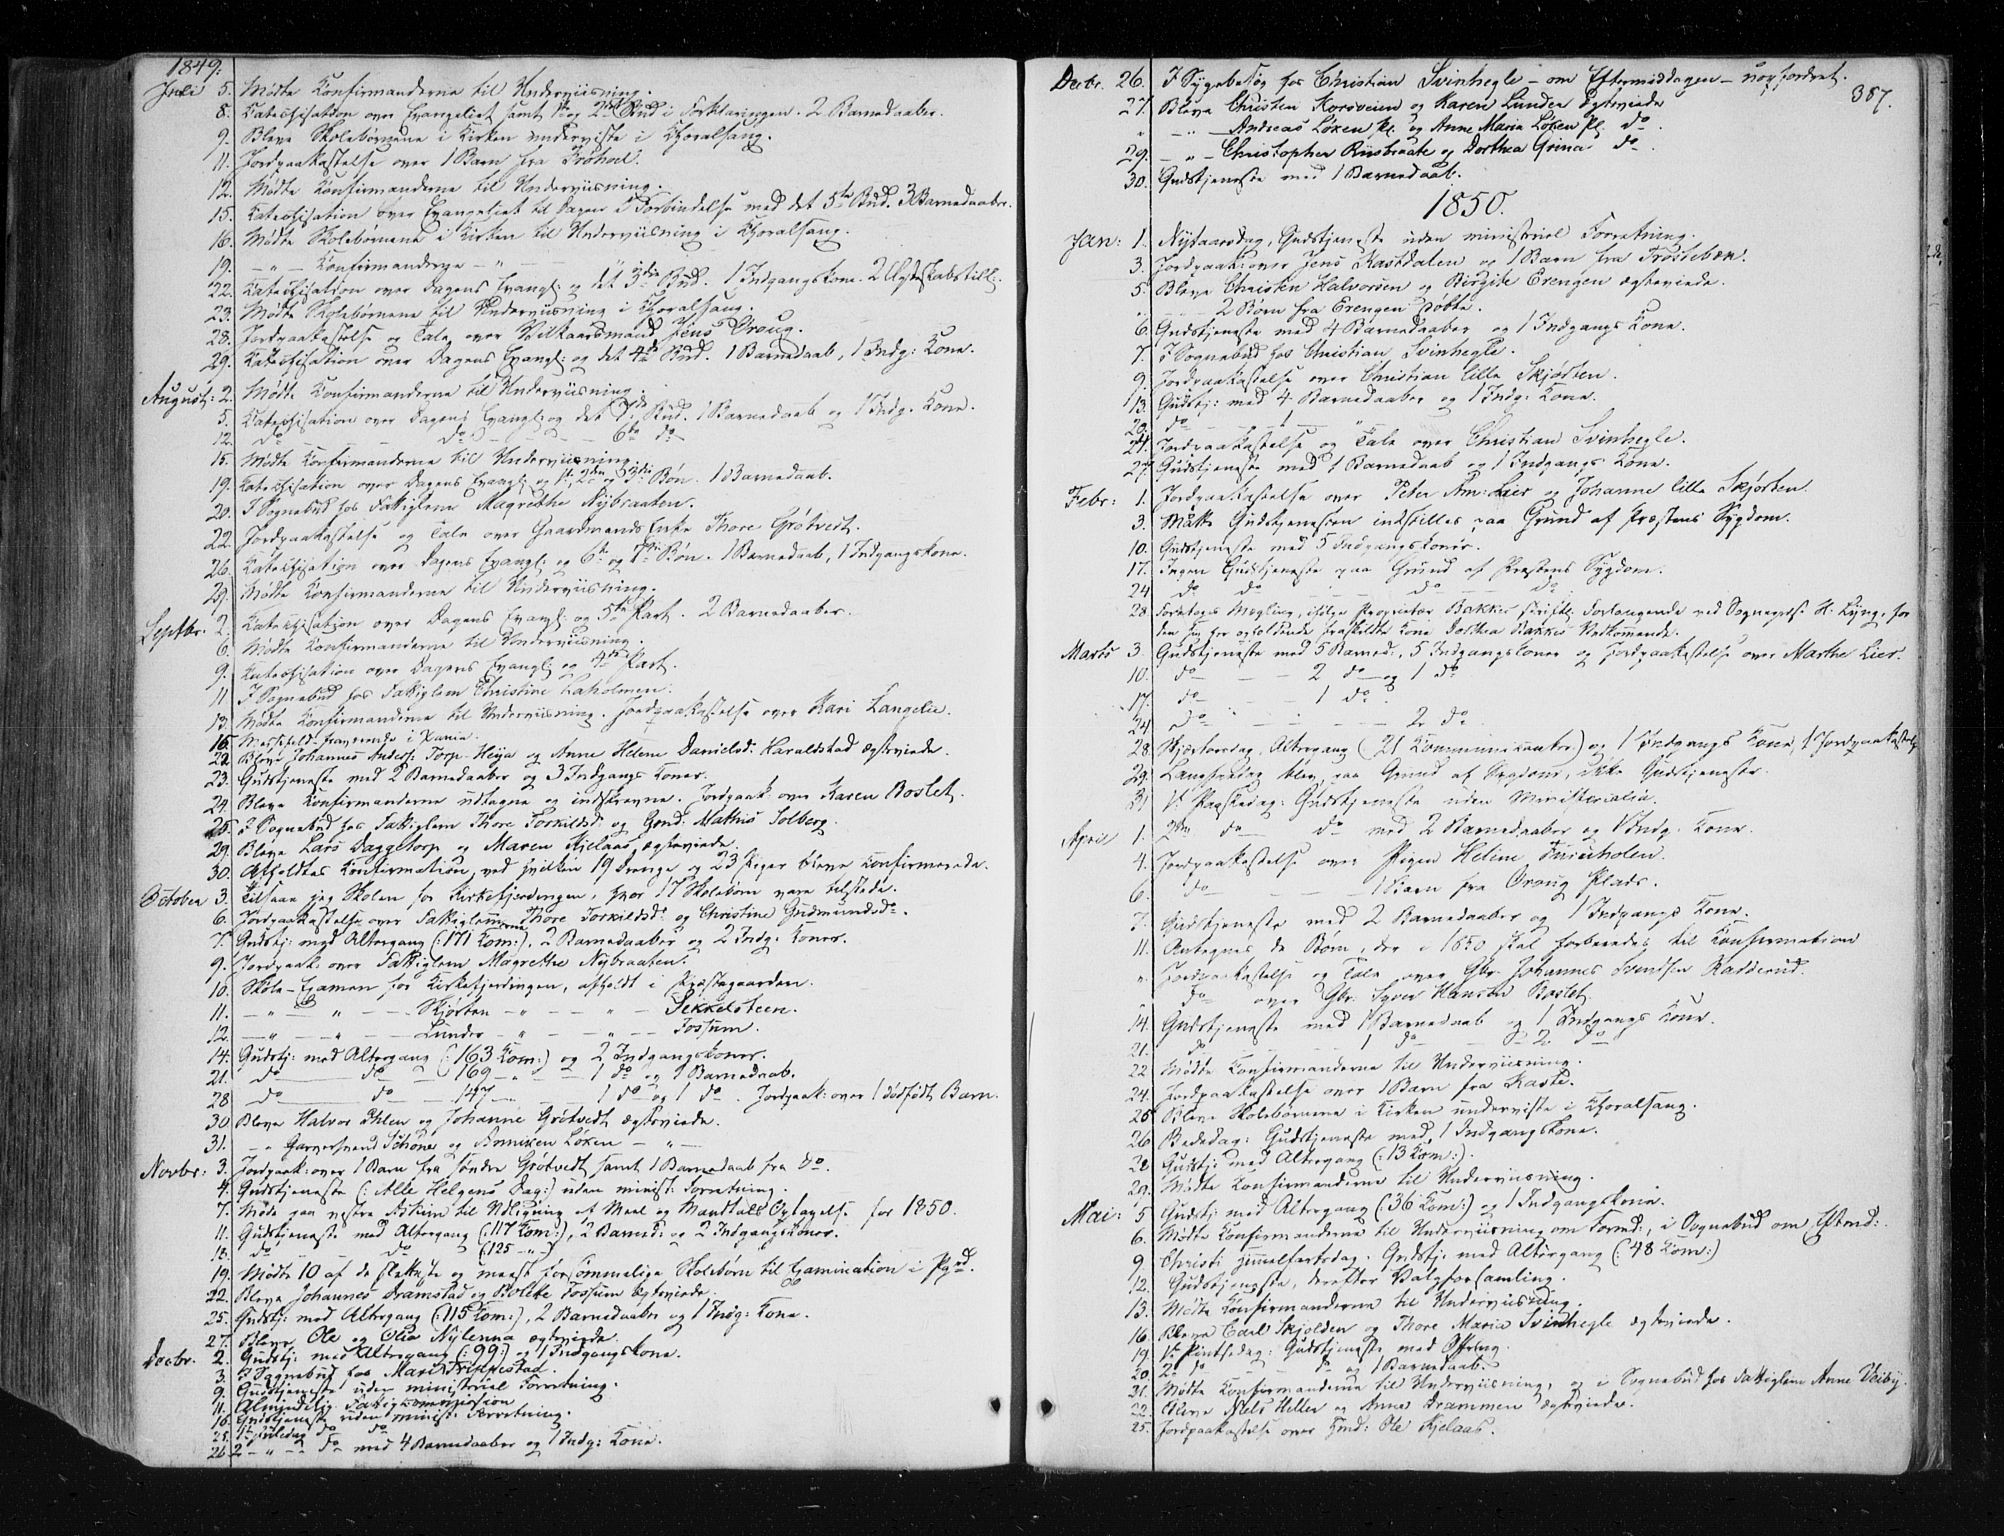 1849:
Juli 5. Mødte Konfirmanderne til Underviisning.
8. Katechisation over Evangeliet samt 1ste og 2det Bud i Forklaringen. 2 Barnedaaber.
9. Bleve Skolebørnene i Kirken underviste i Choralsang.
11. Jordpaakastelse over 1 Barn fra Frøhoel.
12. Mødte Konfirmanderne til Underviisning.
15. Katechisation over Evangeliet til Dagen i Forbindelse med det 5te Bud. 3 Barnedaaber.
16. Mødte Skolebørnene i Kirken til Underviisning i Choralsang.
19. — " — Konfirmanderne — " —
22. Katechisation over Dagens Evangl: og det 3die Bud. 1 Indgangskone. 2 Ægteskabstill:
23. Mødte Skolebørnene til Underviisning i Choralsang.
28. Jordpaakastelse og Tale over Vilkaarsmand Jens Droug.
29. Katechisation over Dagens Evangl: og det 4de Bud. 1 Barnedaab, 1 Indg: Kone.
August: 2. Mødte Konfirmanderne til Underviisning.
5. Katechisation over Dagens Evangl: og det 7de Bud. 1 Barnedaab og 1 Indg. Kone.
12. do do 6te do
15. Mødte Konfirmanderne til Underviisning.
19. Katechisation over Dagens Evangl: og 1ste, 2den og 3die Bøn. 1 Barnedaab.
20. I Sognebud hos Fattiglem Magrethe Nybraaten.
22. Jordpaakastelse og Tale over Gaardmands Enke Thore Grøtvedt.
26. Katechisation over Dagens Evangl: og 6te og 7de Bøn. 1 Barnedaab, 1 Indgangskone.
29. Mødte Konfirmanderne til Underviisning.
Septbr. 2. Katechisation over Dagens Evangl: og 5te Part. 2 Barnedaaber.
6. Mødte Konfirmanderne til Underviisning.
9. Katechisation over Dagens Evangl: og 4de Part.
11 I Sognebud hos Fattiglem Christine Laholmen.
13. Mødte Konfirmanderne til Underviisning. Jordpaakastelse over Kari Langelie.
16. Messefald. fraværende i Xania.
22. Bleve Johannes Anders: Torp-Heija og Anne Helene Danielsd: Haraldstad ægteviede.
23. Gudstjeneste med 2 Barnedaaber og 3 Indgangs Koner.
24. Bleve Konfirmanderne udtagne og indskrevne. Jordpaak: over Karen Boslet.
25. I Sognebud hos Fattiglem Thore Torkildsd: og Gmd: Mathis Solberg.
29. Bleve Lars Daggetorp og Maren Kjelaas ægteviede.
30. Afholdtes Konfirmation, ved hvilken 19 Drenge og 23 Piger bleve konfirmerede.
October 3. Tilsaae jeg Skolen for Kirkefjerdingen, hvor 17 Skolebørn vare tilstede.
6. Jordpaakastelse over Fattiglemmerne Thore Torkildsd: og Christine Gudmundsd:
7. Gudstj: med Altergang (:171 Kom:), 2 Barnedaaber og 2 Indg: Koner.
9. Jordpaak: over Fattiglem Magrethe Nybraaten.
10. Skole-Examen for Kirkefjerdingen, afholdt i Præstegaarden.
11. — " — " — Skjørten — " — " — Sekkelsteen.
12. — " — " — Lunder — " — " — Fossum.
14. Gudstj: med Altergang (:163 Kom:) og 2 Indgangskoner.
21. do do 169 — 1 do og 1 Barnedaab.
28 do do 147 — 1 do og 1 do. Jordpaak: over 1 dødfødt Barn.
30 Bleve Halvor Ihlen og Johanne Grøtvedt ægteviede.
31. — " Garversvend Schøne og Anniken Løken — " —
Novbr: 3. Jordpaak: over 1 Barn fra søndre Grøtvedt samt 1 Barnedaab fra do.
4. Gudstjeneste (: Alle Helgens Dag:) uden minist: Forretning.
7. Møde paa vestre Askim til Udligning af Meel og Mandtals Optagelse for 1850.
11. Gudstjeneste med Altergang (:117 Kom:), 2 Barned: og 2 Indgangskoner.
18. do do (:125 — " —)
19. Mødte 10 af de sletteste og meest forsømmelige Skolebørn til Examination i Pgrd.
22. Bleve Johannes Dramstad og Bolette Fossum ægteviede.
25. Gudstj: med Altergang (:115 Kom:), 2 Barnedaaber og 1 Indg: Kone.
27. Bleve Ole og Olia Nylenna ægteviede.
Decbr. 2. Gudstj: med Altergang (:99:) og 1 Indgangskone.
3. I Sognebud hos Mari Frinnestad.
9. Gudstjeneste uden ministriel Forretning.
11. Almindelig Fattigkommission
16. Gudstjeneste uden minist: Forretning.
25. 1ste Juledag do do
26. 2 — " — do med 4 Barnedaaber og 1 Indg: Kone.
Decbr. 26. I Sygebesøg hos Christian Svinhegle — om Eftermiddagen — uopfordret.
387.
27. Bleve Christen Korsveien og Karen Lunder ægteviede
" — " — Andreas Løken Pl. og Anne Maria Løken Pl. do
29. — " — Christopher Riisbraate og Dorthea Grina do
30. Gudstjeneste med 1 Barnedaab.
1850.
Jan: 1. Nytaarsdag, Gudstjeneste uden ministriel Forretning.
3. Jordpaak: over Jens Kastdalen og 1 Barn fra Trøstebæn.
5. Bleve Christen Halvorsen og Birgite Erengen ægteviede.
" 2 Børn fra Erengen døbte.
6. Gudstjeneste med 4 Barnedaaber og 1 Indgangs Kone.
7. I Sognebud hos Christian Svinhegle.
9. Jordpaakastelse over Christian lille Skjørten.
13. Gudstj: med 4 Barnedaaber og 1 Indg: Kone.
20. do 1 "
24. Jordpaakastelse og Tale over Christian Svinhegle.
27. Gudstjeneste med 1 Barnedaab og 1 Indgangs Kone.
Febr: 1. Jordpaakastelse over Peter Am: Lier og Johanne lille Skjørten.
3. Måtte Gudstjenesten indstilles paa Grund af Præstens Sygdom.
10. Gudstjeneste med 5 Indgangskoner.
17. Ingen Gudstjeneste paa Grund af Præstens Sygdom.
24 do do do do
28. Foretoges Mægling, ifølge Proprietær Bakkes skriftl. Forlangende ved Sognepr: H. Kyng, for
den sig her opholdende fraskildte Kone Dorthea Bakkes Vedkommende.
Marts 3. Gudstjeneste med 5 Barned:, 5 Indgangskoner og Jordpaakastelse over Marthe Lier.
10. do — 2 do og 1 do
17. do — 1 do
24. do — 2 do
28. Skjærtorsdag, Altergang (21 Kommunikanter) og 1 Indgangs Kone, 1 Jordpaakastelse
29. Langfredag blev, paa Grund af Sygdom, ikke Gudstjeneste.
31 1ste Paaskedag: Gudstjeneste uden Ministerialia.
April 1. 2den do do med 2 Barnedaaber og 1 Indg. Kone.
4. Jordpaakastelse over Pigen Heline Furuholen.
6. do 1 Barn fra Droug Plads.
7. Gudstjeneste med 2 Barnedaaber og 1 Indgangs Kone.
11. Antegnes de Børn, der i 1850 skal forberedes til Konfirmation
". Jordpaakastelse og Tale over Gbr. Johannes Svendsen Radderud.
do over Gbr. Syver Hansen Boslet.
14. Gudstjeneste med 1 Barnedaab og 1 Indgangs Kone.
21. do 1 do 2 do
22 Mødte Konfirmanderne til Underviisning.
24. Jordpaakastelse over 1 Barn fra Kaste.
25 Bleve Skolebørnene i Kirken underviste i Choralsang.
26 Bededag: Gudstjeneste med 1 Indgangskone.
28 Gudstj: med Altergang (:13 Kom:).
29. Mødte Konfirmanderne til Underviisning.
Mai: 5 Gudstj: med Altergang (:36 Kom:) og 1 Indgangskone.
6. Mødte Konfirmanderne til Underviisning om Formd:, i Sognebud om Eftmd:
9. Christi Himmelfartsdag. Gudstj: med Altergang (:48 Kom:)
12. Gudstjeneste, derefter Valgforsamling.
13. Mødte Konfirmanderne til Underviisning.
16. Bleve Carl Skjolden og Thore Maria Svinhegle ægteviede.
19 1ste Pintsedag: Gudstjeneste med Offring.
20. 2d do do og 1 Barnedaab.
21. Mødte Konfirmanderne til Underviisning, og i Sognebud hos Fattiglem Anne Vaiby.
22. Bleve Niels Heller og Anne Drammen ægteviede.
25. Jordpaakastelse over Gmd: Ole Kjelaas.